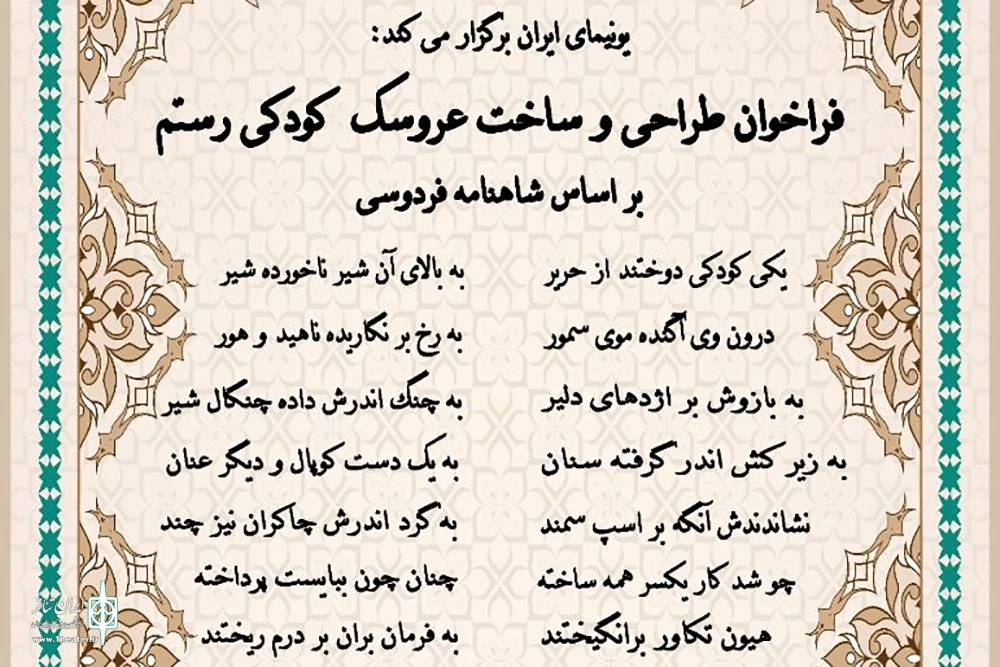 یونیمای ایران برگزار می کند:
فراخوان طراحی و ساخت عروسک کودکی رستم
بر اساس شاهنامه فردوسی
یکی کودکی دوختند از حریر به بالای آن شیر ناخورده شیر
درون وی آگنده موی سمور به رخ بر نگاریده ناهید و هور
به بازوش بر اژدهای دلیر به چنگ اندرش داده چنگال شیر
به زیر کش اندر گرفته سنان به یک دست کوپال و دیگر عنان
نشاندندش آنگه بر اسپ سمند به گرد اندرش چاکران نیز چند
چو شد کار یکسر همه ساخته چنان چون ببایست پرداخته
هیون تکاور برانگیختند به فرمان بران بر درم ریختند
ایران تئاتر
www.Theater.ir